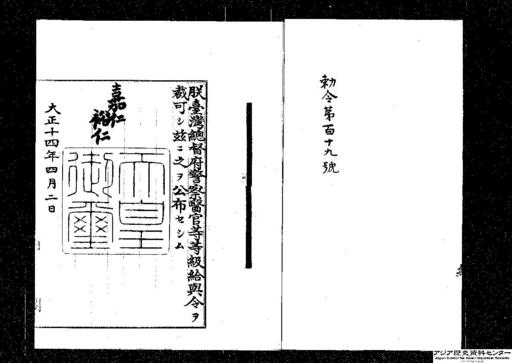 勅令第百十九號
朕臺灣總督府警察醫官等等級給與令ヲ
裁可シ玆ニ之ヲ公布セシム
嘉仁
裕仁
天皇御璽
大正十四年四月二日
アジア歴史資料センター
Japan Center for Asian Historical Records